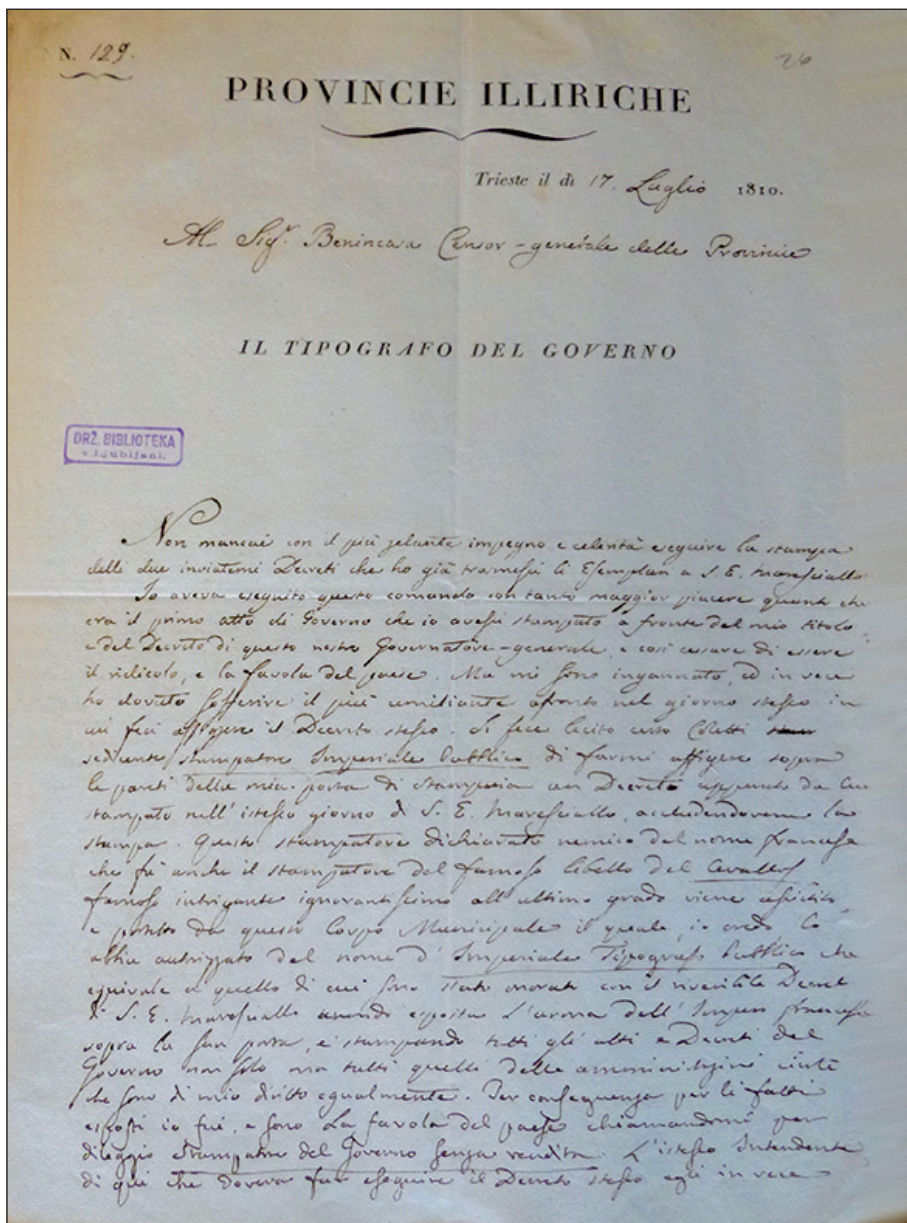 N. 129.
26
PROVINCIE ILLIRICHE
Trieste il dì 17. Luglio 1810.
Al Sigr. Benincasa Censor-generale delle Provincie
IL TIPOGRAFO DEL GOVERNO
DRŽ. BIBLIOTEKA
v Ljubljani.
Non mancai con il più zelante impegno e celerità eseguire la stampa
delli due inviatemi Decreti che ho già trasmessi li Esemplari a S. E. Maresciallo
Io aveva eseguito questo comando con tanto maggior piacere quanto che
era il primo atto di Governo che io avessi stampato a fronte del mio titolo
e del Decreto di questo nostro Governatore-generale, e così cessare di essere
il ridicolo, e la favola del paese. Ma mi sono ingannato, ed in vece
ho dovuto sofferire il più umiliante afronto nel giorno stesso in
cui feci affigere il Decreto stesso. Si fece lecito certo Coletti
sedicente stampatore Imperiale Pubblico di farmi affigere sopra
le pareti della mia porta di stamperia un Decreto da lui
stampato nell' istesso giorno di S. E. Maresciallo, accludendovene la
stampa. Questo stampatore dichiarato nemico del nome francese
che fù anche il stampatore del famoso libello del Cevallos
famoso intrigante ignorantissimo all' ultimo grado viene
e da questo Corpo Municipale il quale, io credo, lo
abbia autorizzato del nome d' Imperiale Tipografo Pubblico che
equivale a quello di cui sono stato onorato con il riveribile Decreto
di S. E. Maresciallo avendo esposta L'arma dell' francese
sopra la sua porta, e stampando tutti gli atti e Decreti del
Governo non solo ma tutti quelli delle civili
che sono di mio diritto egualmente. Per conseguenza per li fatti
esposti io fui, e sono La favola del paese chiamandomi per
dileggio Stampatore del Governo senza vendita. L'istesso Intendente
di qui che doveva far eseguire il Decreto stesso egli in vece